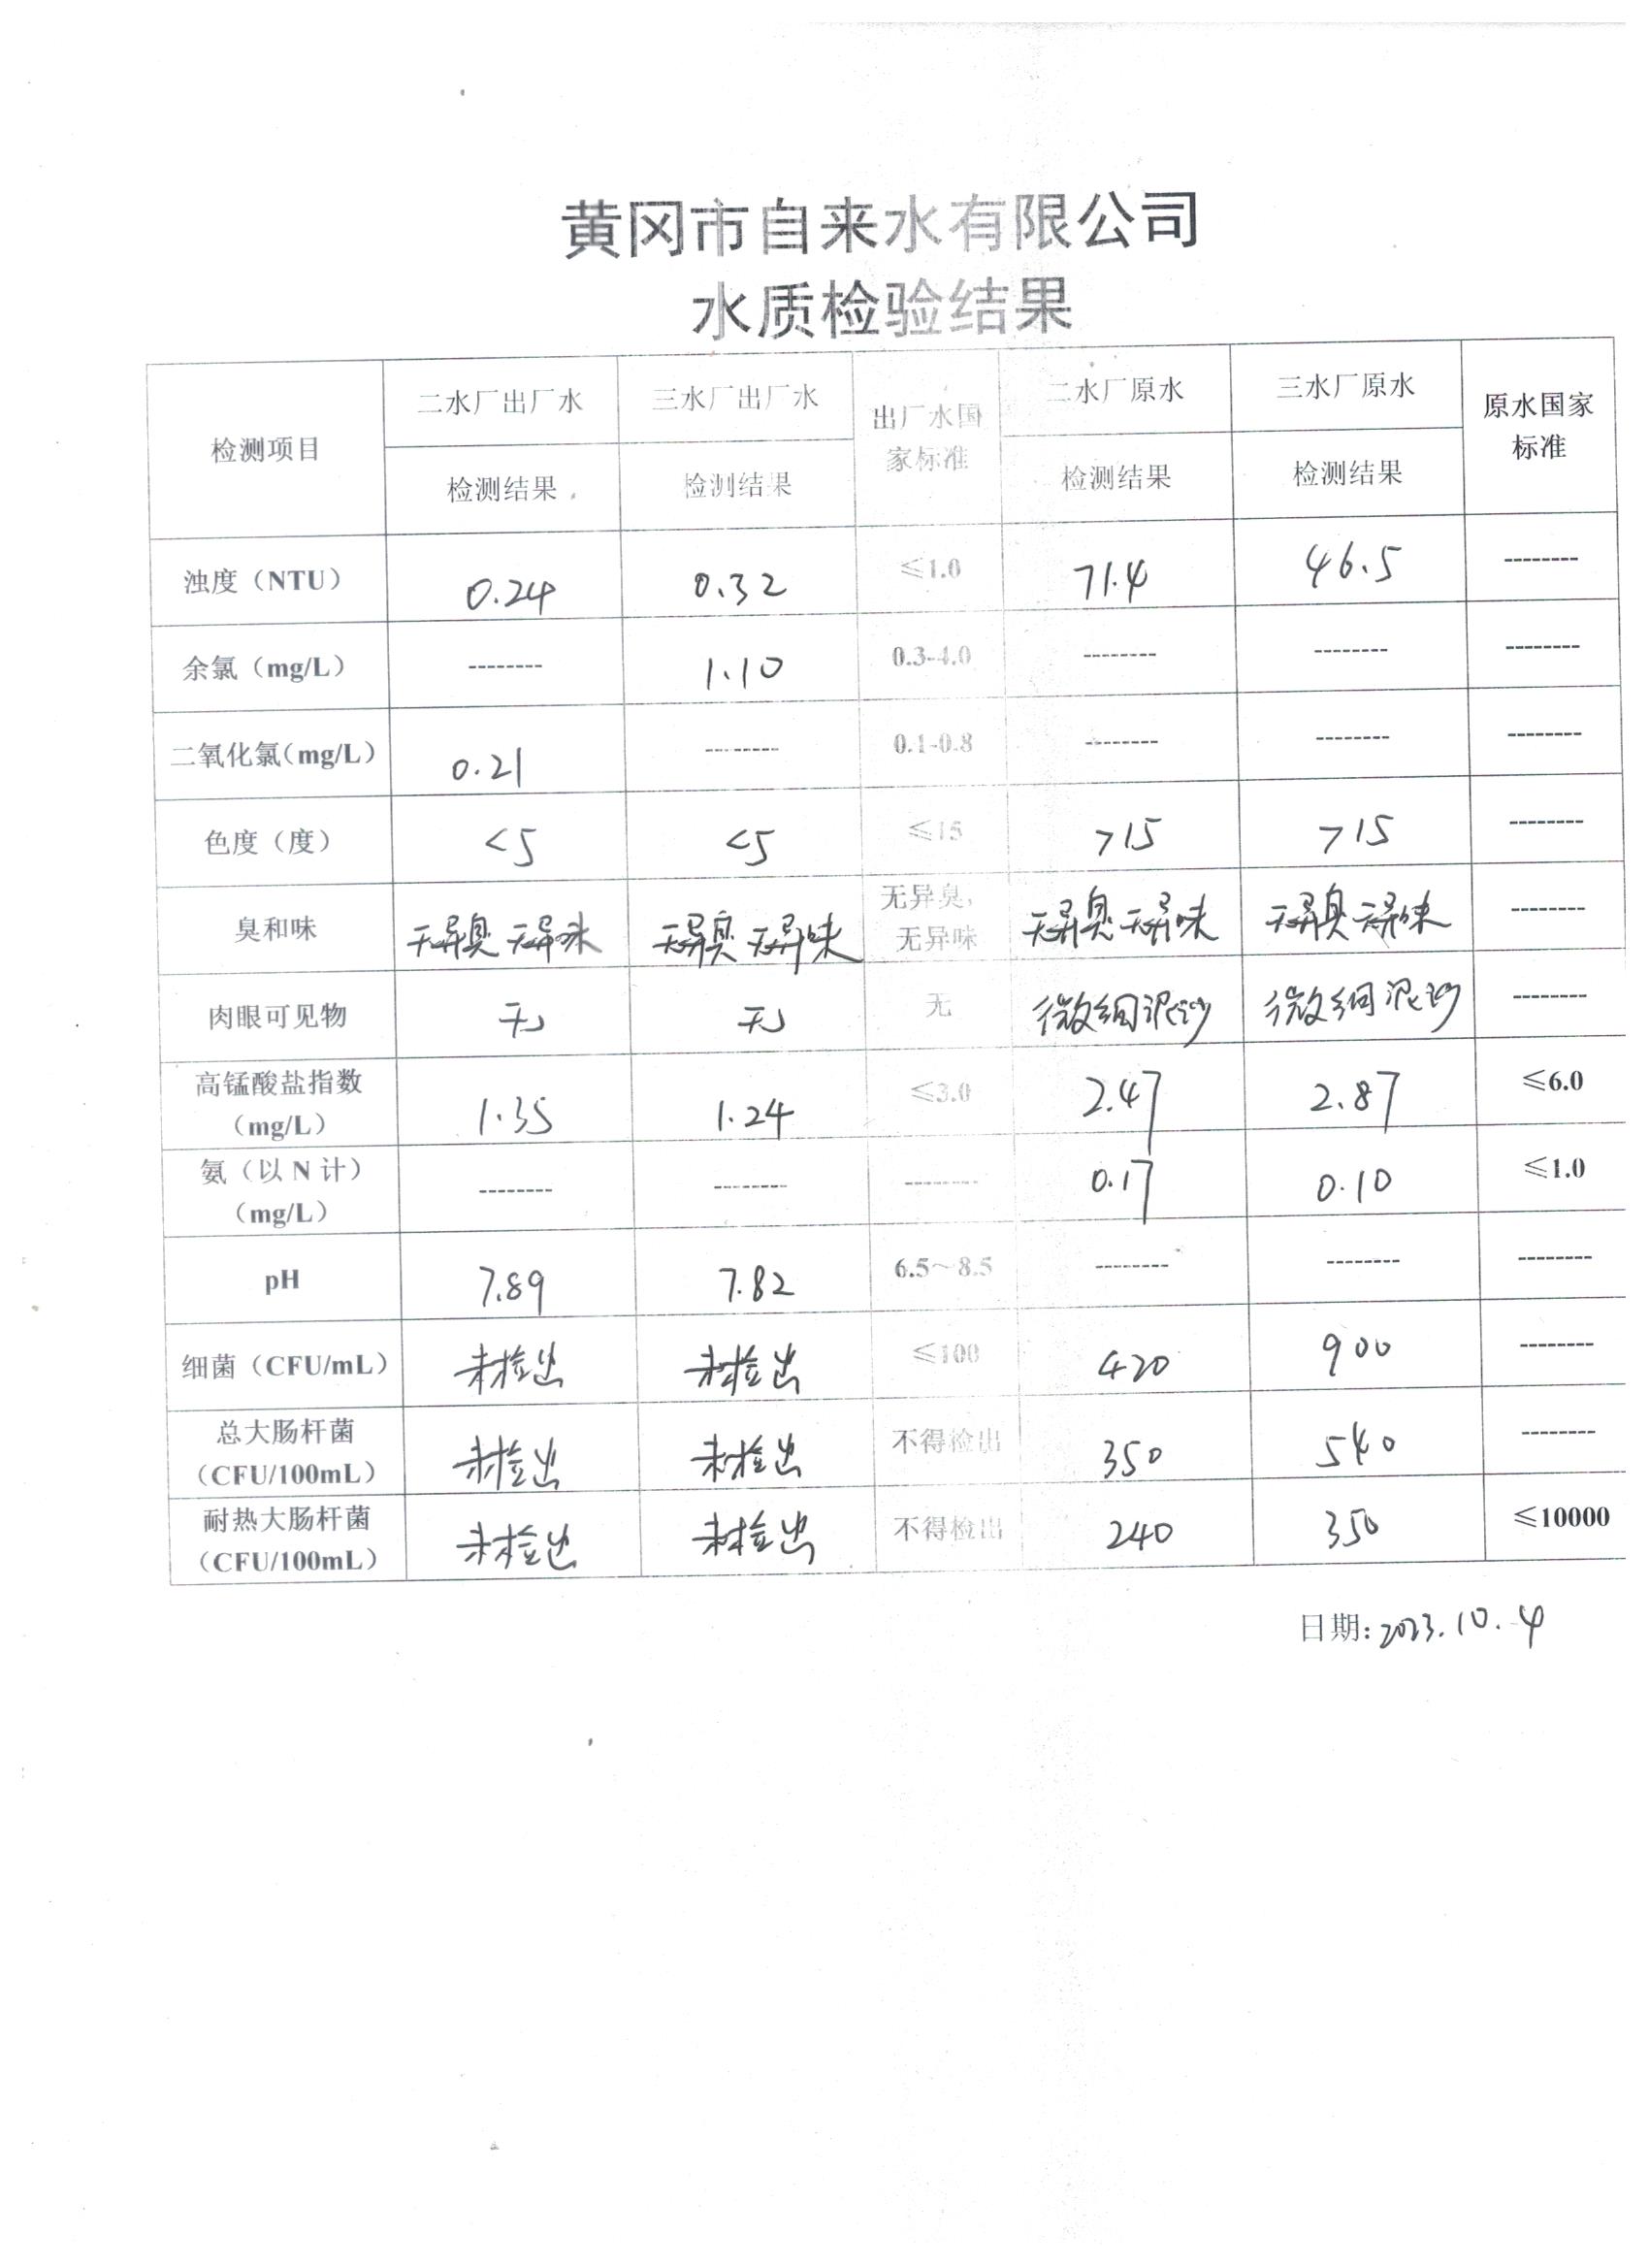 黄冈市自来水有限公司
水质检验结果
检测项目 二水厂出厂水 三水厂出厂水 出厂水国家标准 二水厂原水 三水厂原水 原水国家标准
检测结果 检测结果 检测结果 检测结果
浊度（NTU） 0.24 0.32 ≤1.0 71.4 46.5 --------
余氯（mg/L） -------- 1.10 0.3-4.0 -------- -------- --------
二氧化氯(mg/L) 0.21 -------- 0.1-0.8 -------- -------- --------
色度（度） <5 <5 ≤15 >15 >15 --------
臭和味 无异臭 无异味 无异臭 无异味 无异臭，无异味 无异臭 无异味 无异臭 无异味 --------
肉眼可见物 无 无 无 微细泥沙 微细泥沙 --------
高锰酸盐指数（mg/L） 1.35 1.24 ≤3.0 2.47 2.87 ≤6.0
氨（以 N 计）（mg/L） -------- -------- -------- 0.17 0.10 ≤1.0
pH 7.89 7.82 6.5～8.5 -------- -------- --------
细菌（CFU/mL） 未检出 未检出 ≤100 420 900 --------
总大肠杆菌（CFU/100mL） 未检出 未检出 不得检出 350 540 --------
耐热大肠杆菌（CFU/100mL） 未检出 未检出 不得检出 240 350 ≤10000
日期: 2023.10.4